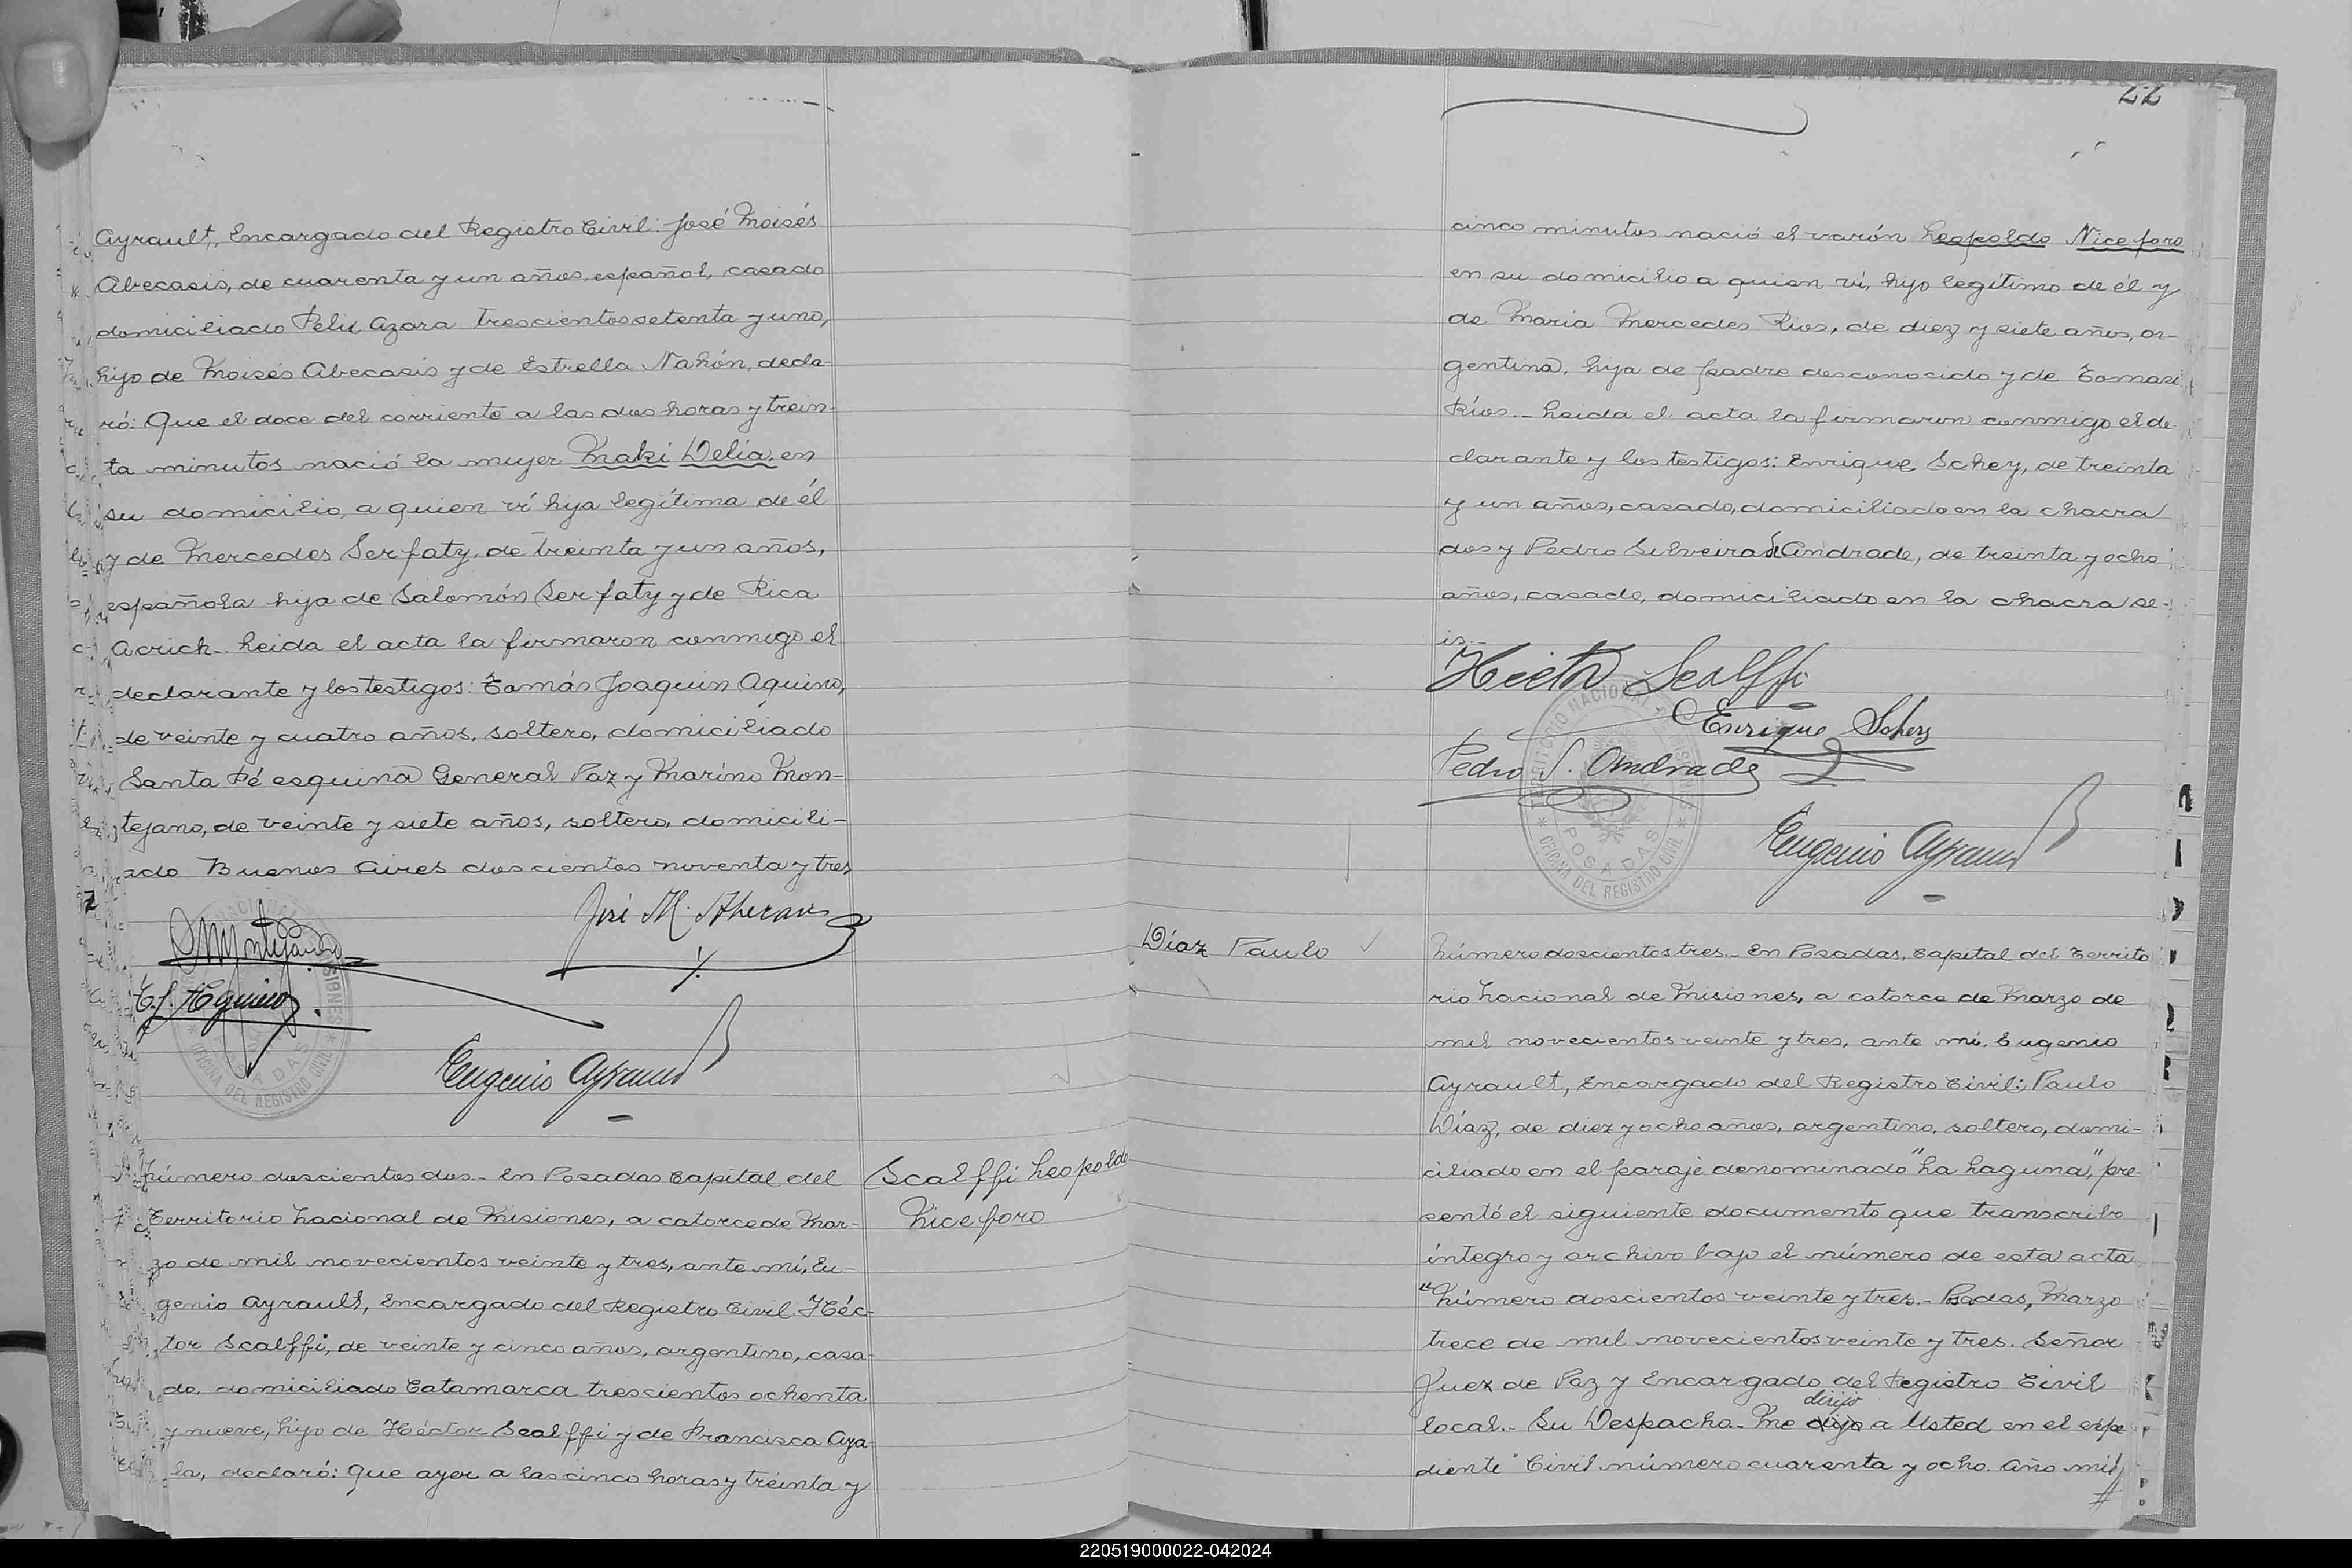 Ayrault, Encargado del Registro Civil: José Moisés
Abecasis, de cuarenta y un años, español, casado
domiciliado Felix Azara trescientos setenta y uno,
hijo de Moisés Abecasis y de Estrella Nahón, decla-
ró: Que el doce del corriente a las dos horas y trein-
ta minutos nació la mujer Maki Delia, en
su domicilio, a quien ví hija legítima de él
y de Mercedes Serfaty, de treinta y un años,
española hija de Salomón Serfaty y de Rica
Acrich. Leida el acta la firmaron conmigo el
declarante y los testigos: Tomás Joaquin Aquino,
de veinte y cuatro años, soltero, domiciliado
Santa Fé esquina General Paz y Marino Mon-
tejano, de veinte y siete años, soltero, domicili-
ado Buenos Aires doscientos noventa y tres
José M. Abecasis
T. J. Aquino
Eugenio Ayrault
OFICINA DEL REGISTRO CIVIL
Número doscientos dos.- En Posadas Capital del
Territorio Nacional de Misiones, a catorce de Mar-
zo de mil novecientos veinte y tres, ante mí, Eu-
genio Ayrault, Encargado del Registro Civil: Héc-
tor Scalffi, de veinte y cinco años, argentino, casa-
do, domiciliado Catamarca trescientos ochenta
y nueve, hijo de Héctor Scalffi y de Francisca Aya-
la, declaró: Que ayer a las cinco horas y treinta y
Scalffi Leopoldo
Niceforo
22
cinco minutos nació el varón Leopoldo Niceforo
en su domicilio a quien ví, hijo legítimo de él y
de Maria Mercedes Rios, de diez y siete años, ar-
gentina, hija de padre desconocido y de Tomasa
Ríos.- Leida el acta la firmaron conmigo el de
clarante y los testigos: Enrique Schey, de treinta
y un años, casado, domiciliado en la chacra
dos y Pedro Silveira Andrade, de treinta y ocho
años, casado, domiciliado en la chacra se-
is.-
Hector Scalffi
Enrique Schey
Pedro S. Andrade
Eugenio Ayrault
TERRITORIO NACIONAL
POSADAS
OFICINA DEL REGISTRO CIVIL
Díaz Paulo
Número doscientos tres.- En Posadas, Capital del Territo
rio Nacional de Misiones, a catorce de Marzo de
mil novecientos veinte y tres, ante mí, Eugenio
Ayrault, Encargado del Registro Civil: Paulo
Díaz, de diez y ocho años, argentino, soltero, domi-
ciliado en el paraje denominado "La Laguna", pre-
sentó el siguiente documento que transcribo
íntegro y archivo bajo el número de esta acta
"Número doscientos veinte y tres.- Posadas, Marzo
trece de mil novecientos veinte y tres. Señor
Juez de Paz y Encargado del Registro Civil
local.- Su Despacho.- Me dirijo a Usted en el expe
diente Civil número cuarenta y ocho. Año mil
220519000022-042024